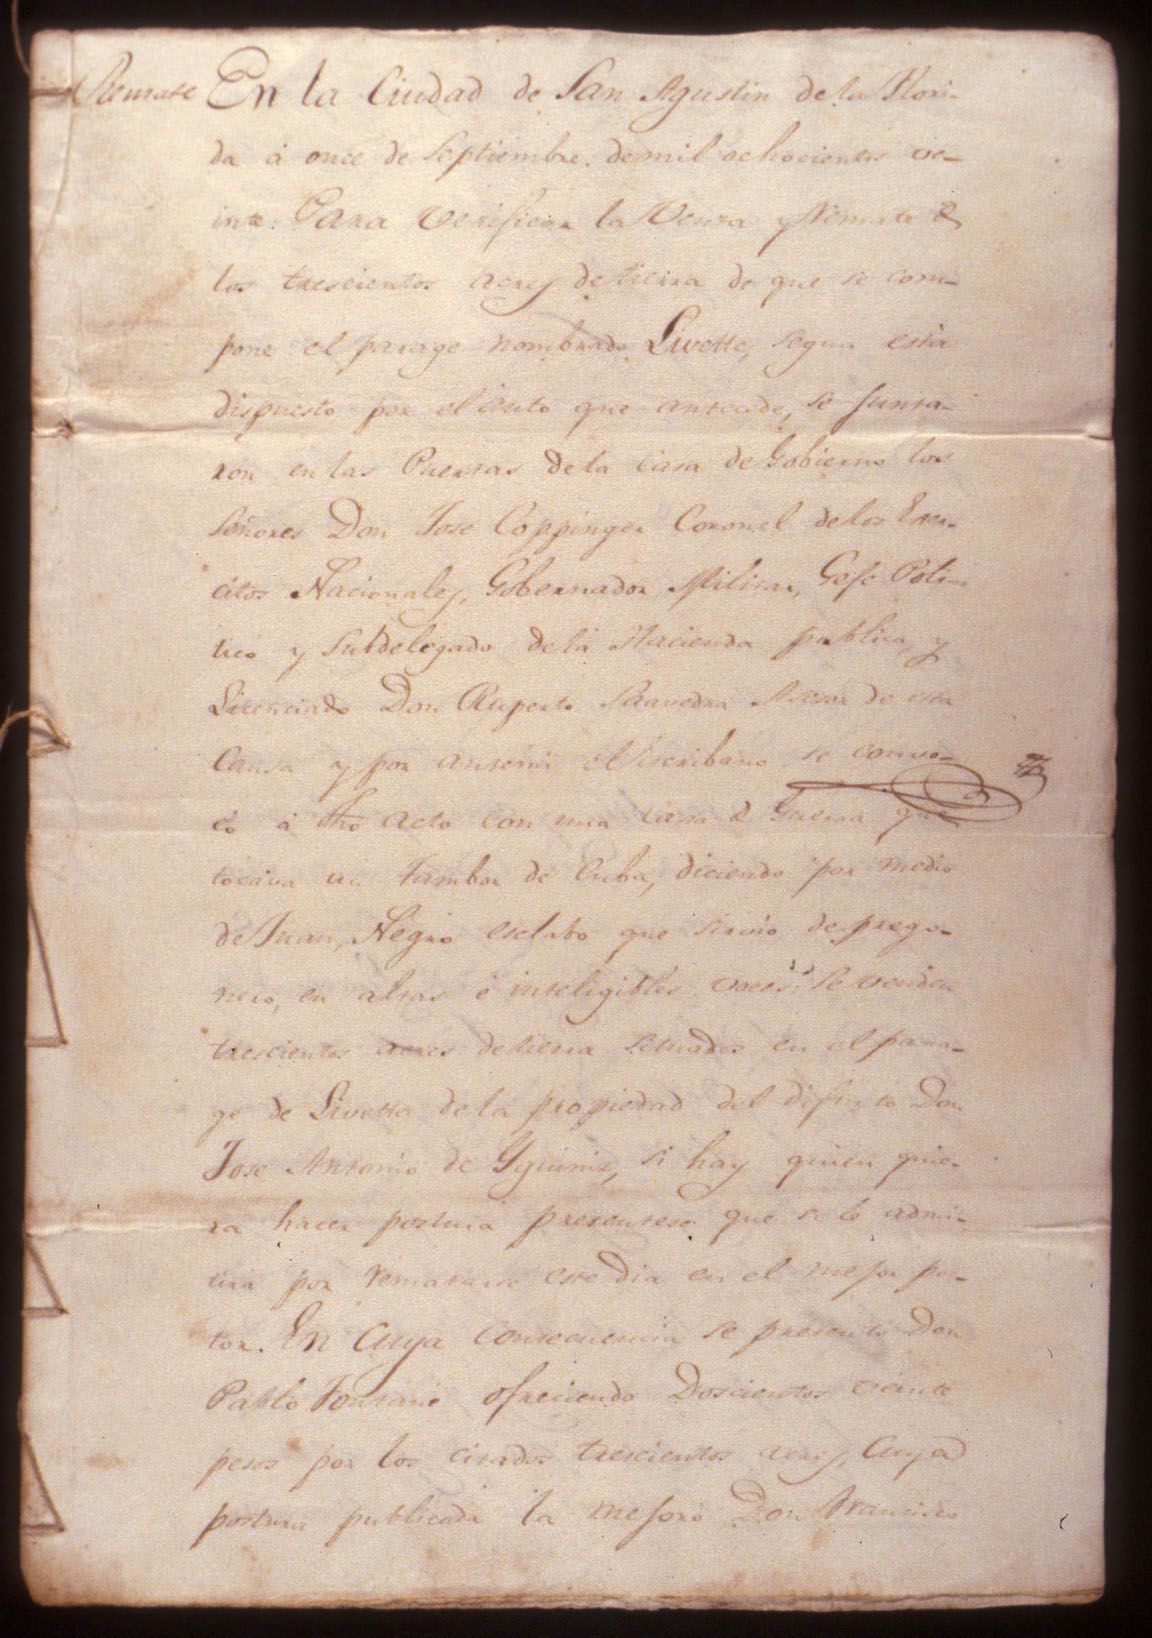 Remate En la Ciudad de San Agustin de la Flori-
da á once de Septiembre de mil ochocientos ve-
inte: Para verificar la Venta y Remate de
los trescientos acres de tierra de que se com-
pone el parage nombrado Livette, segun está
dispuesto por el auto que antecede, se junta-
ron en las Puertas de la casa de Gobierno los
Señores Don Jose Coppinger Coronel de los Exer-
citos Nacionales, Gobernador Militar, Gefe Poli-
tico y Subdelegado de la Hacienda publica, y
Licenciado Don Ruperto Saavedra Asesor de esta
Causa y por antemi el Escribano se convo-
có á dho acto con una Caxa de Guerra que
tocava un Tambor de Cuba, diciendo por medio
de Juan, Negro esclabo que sirvió de prego-
nero, en altas é inteligibles voces: se venden
trescientos acres de tierra situados en el para-
ge de Livette de la propiedad del difunto Don
Jose Antonio de Yguiniz, si hay quien quie-
ra hacer postura presentese que se le admi-
tirá por rematarse este dia en el mejor pos-
tor. En Cuya consecuencia se presentó Don
Pablo Fontané ofreciendo Doscientos veinte
pesos por los citados trescientos acres, Cuya
postura publicada la mejoró Don Francisco